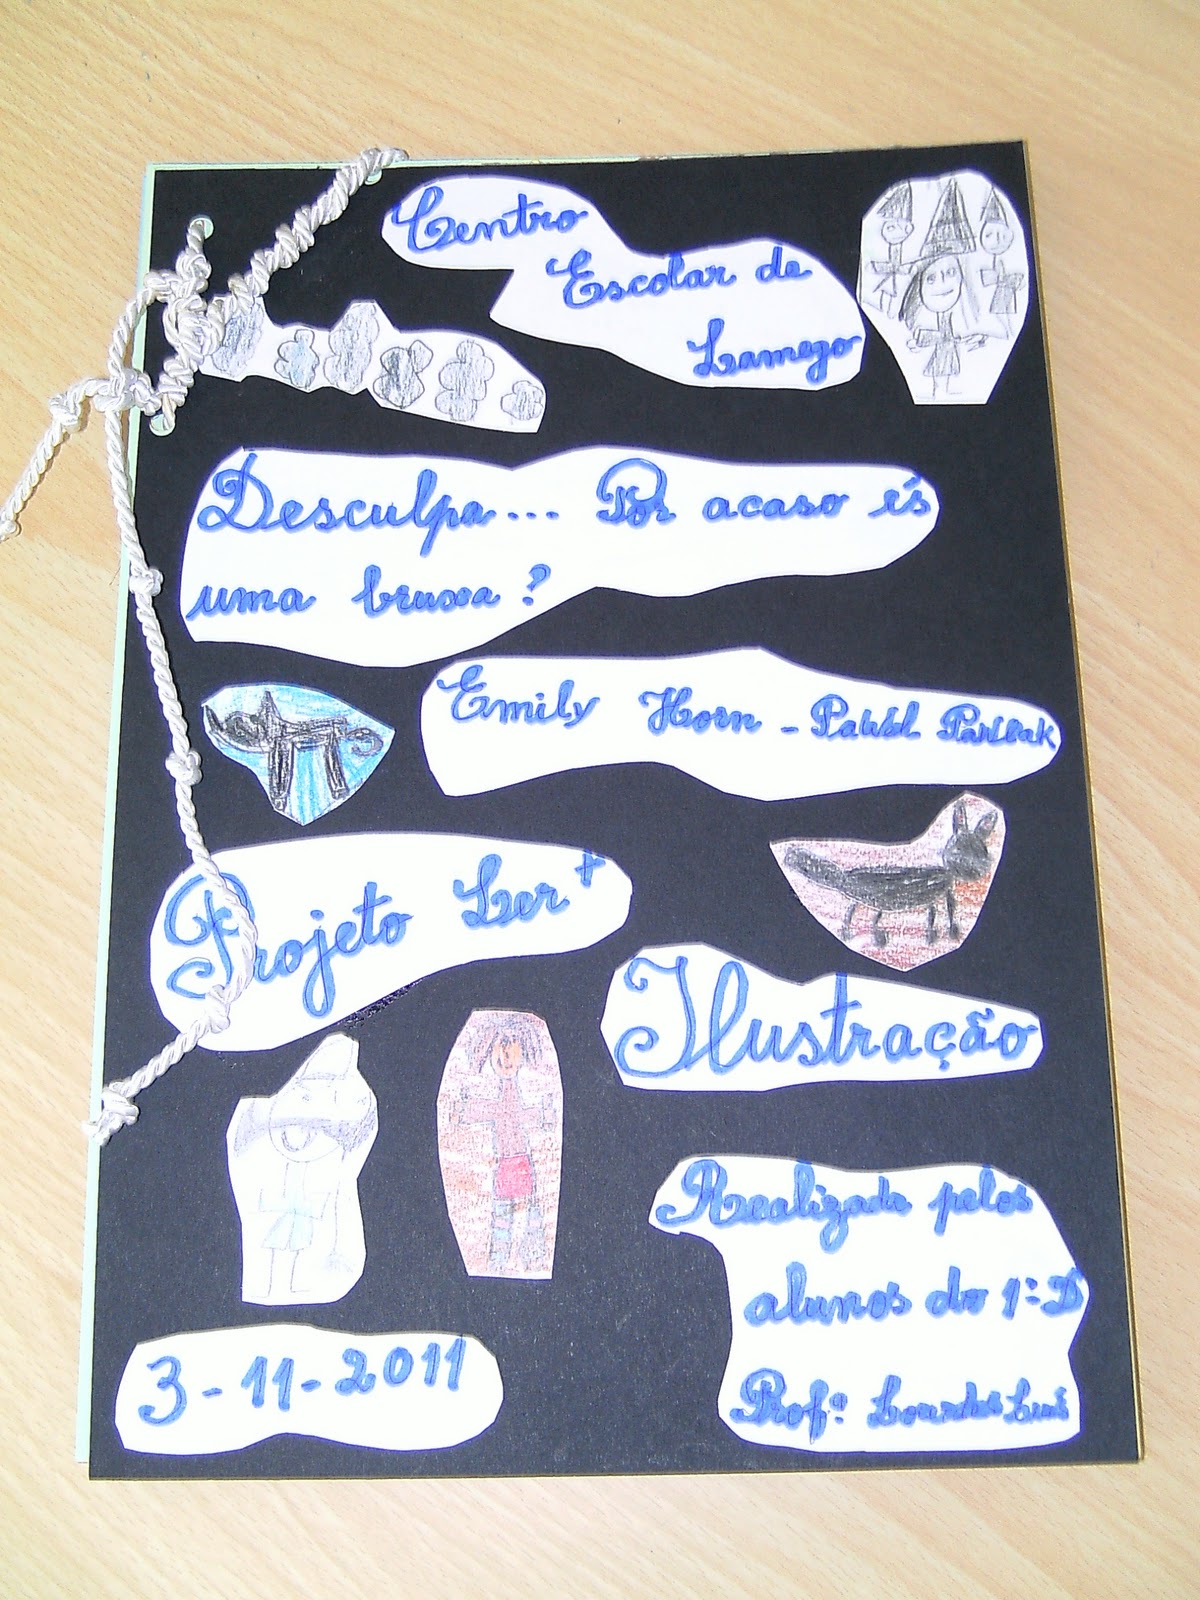 Centro
Escolar de
Lamego
Desculpa... Por acaso és
uma bruxa?
Emily Horn - Pawel Pawlak
Projeto Ler+
Ilustração
Realizada pelos
alunos do 1º D
Profª Lourdes Luís
3-11-2011